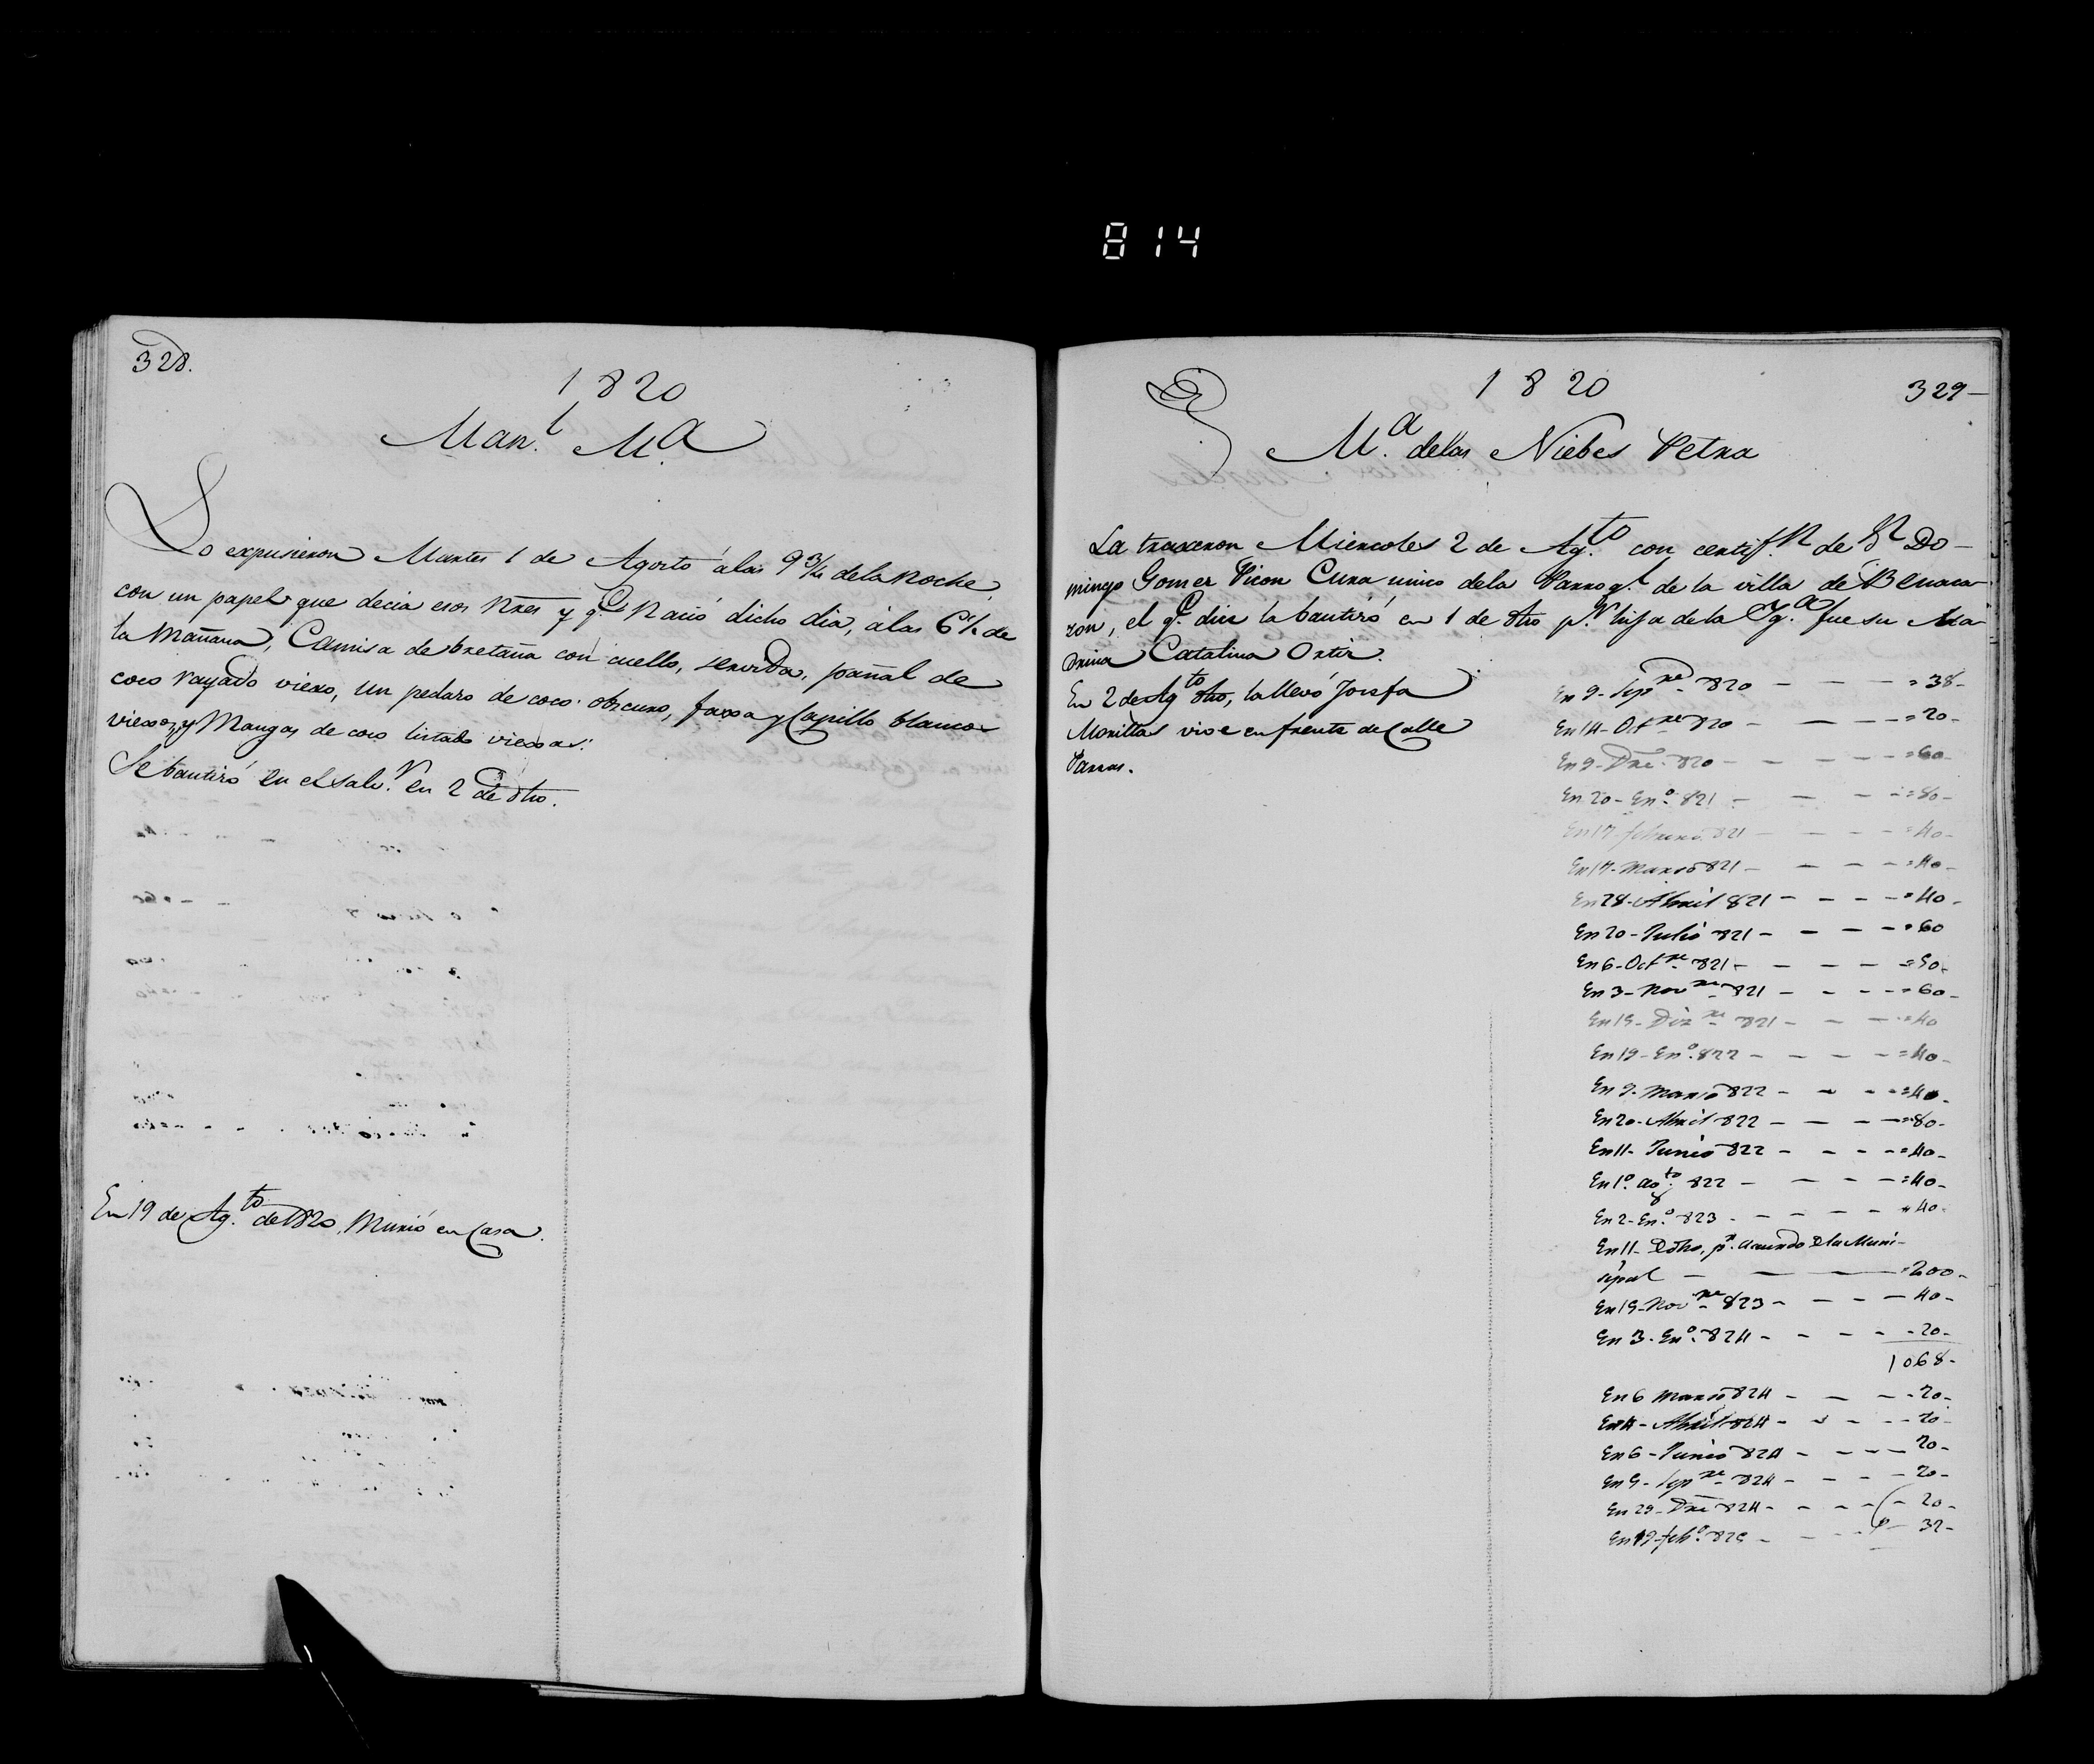 814
328.
1820
Man.l M.a
Lo expusieron Martes 1 de Agosto á las 9 3/4 de la Noche,
con un papel que decia esos Nres y q.e Nació dicho dia, á las 6 1/2 de
la Mañana, Camisa de bretaña con cuello, servida, pañal de
coco rayado viexo, un pedazo de coco obscuro, faxa y Capillo blancos
viexos, y Mangas de coco listado viexas.
Se bautizó en el Salv.r en 2 de dho.
En 19 de Ag.to de 1820, Murió en Casa.
1820
329
M.a de las Niebes Petra
La traxeron Miercoles 2 de Ag.to con certif.n de Dn Do-
mingo Gomez Picon Cura unico de la Parroq.l de la villa de Benaca-
zon, el q.e dice la bautizó en 1 de dho p.r hija de la Yg.a fue su Ma-
drina Catalina Ortiz.
En 2 de Ag.to dho, la llevó Josefa
Morillas vive en frente de Calle
Parras.
En 9 - Sep.re 820 - - - = 38 -
En 14 - Oct.re 820 - - - = 20 -
En 9 - Dre. 820 - - - = 60 -
En 20 - En.o 821 - - - = 80 -
En 17 - febrero 821 - - - = 40 -
En 17 - Marzo 821 - - - = 40 -
En 28 - Abril 821 - - - = 40 -
En 20 - Julio 821 - - - = 60
En 6 - Oct.re 821 - - - = 50 -
En 3 - Nov.re 821 - - - = 60 -
En 15 - Diz.re 821 - - - = 40
En 19 - En.o 822 - - - = 40 -
En 9 - Marzo 822 - - - = 40 -
En 20 - Abril 822 - - - = 80 -
En 11 - Junio 822 - - - = 40 -
En 1.o ag.to 822 - - - = 40 -
En 2 - En.o 823 - - - = 40 -
En 11 - Dho, p.r acuerdo De la Muni-
sipal - - - = 200 -
En 15 - Nov.re 823 - - - 40 -
En 3 - En.o 824 - - - 20 -
1068 -
En 6 Marzo 824 - - - 20 -
En 4 - Abril 824 - - - 20 -
En 6 - Junio 824 - - - 20 -
En 5 - Sep.re 824 - - - 20 -
En 29 - Dre 824 - - - 20 -
En 19 - feb.o 825 - - - 32 -